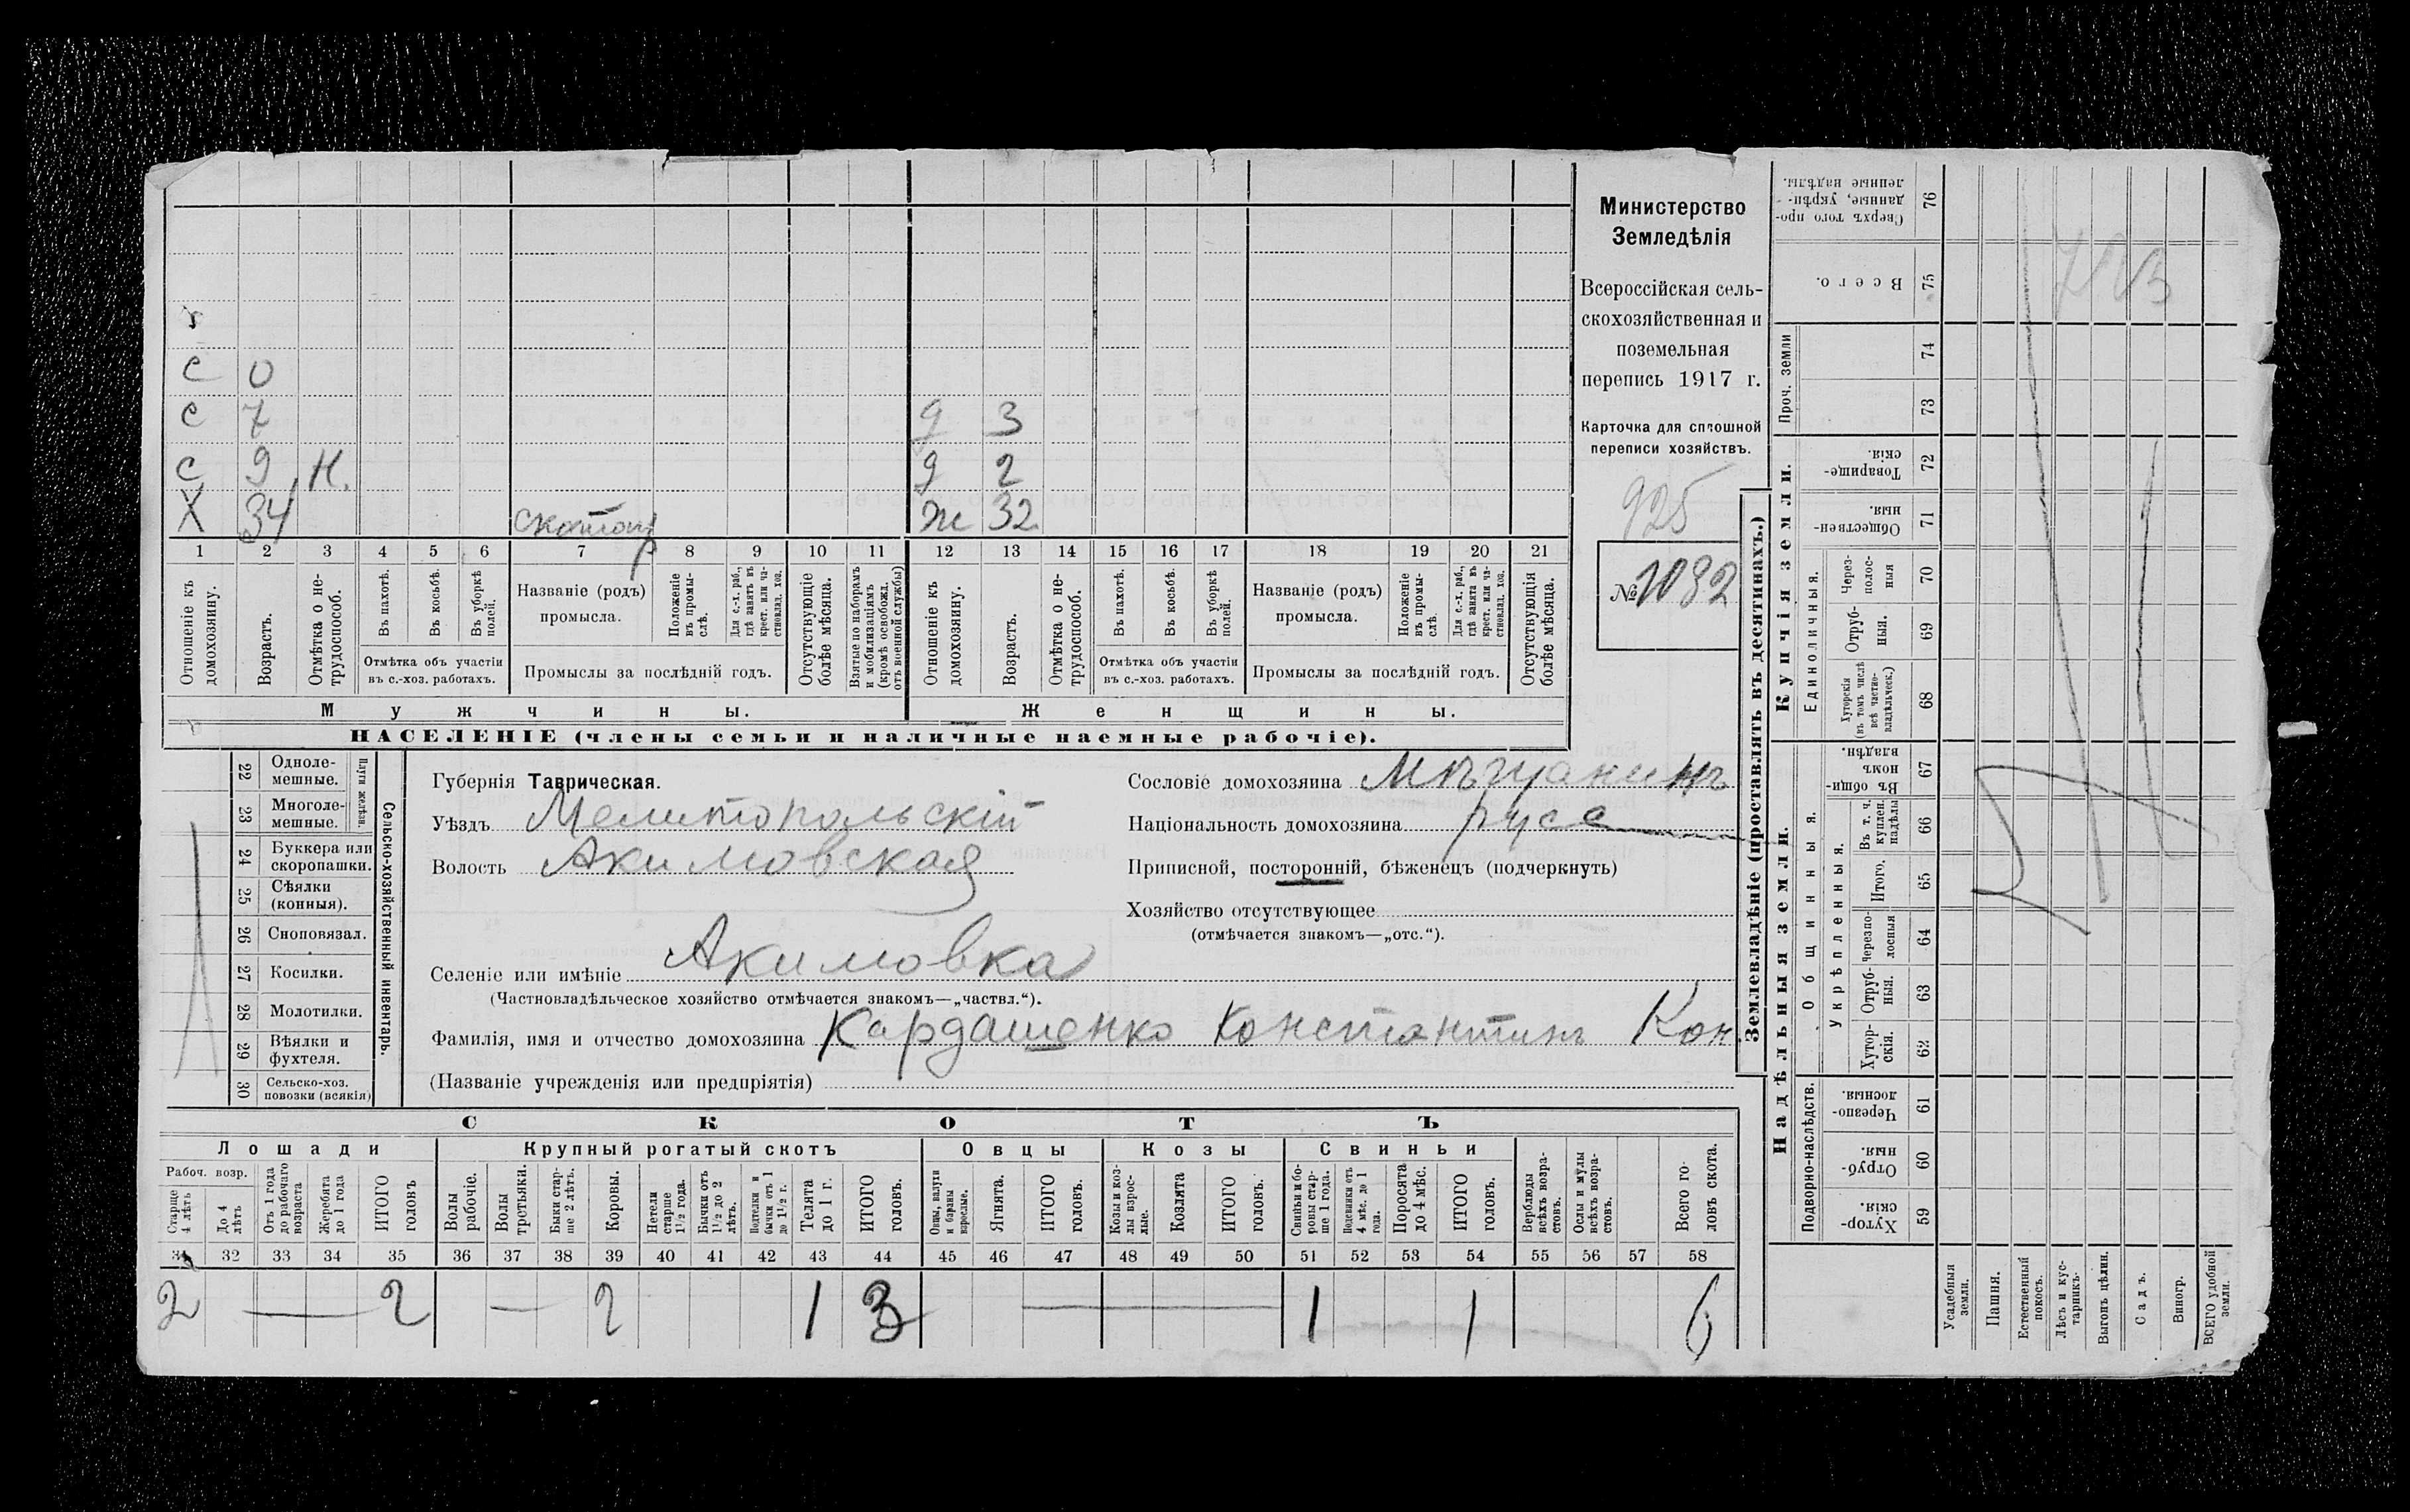 с 0
с 7 д 3
с 9 н. д 2
Х 34 скотопр ж 32
1 2 3 4 5 6 7 8 9 10 11 12 13 14 15 16 17 18 19 20 21
Отношеніе къ домохозяину.
Возрастъ.
Отмѣтка о не-
трудоспособ.
Въ пахотѣ.
Въ косьбѣ.
Въ уборкѣ
полей.
Отмѣтка объ участіи
въ с.-хоз. работахъ.
Названіе (родъ)
промысла.
Положеніе
въ промы-
слѣ.
Для с.-х. раб.,
гдѣ занятъ въ
крест. или ча-
стновлад. хоз.
Промыслы за послѣдній годъ.
Отсутствующіе
болѣе мѣсяца.
Взятые по наборамъ
и мобилизаціямъ
(кромѣ освобожд.
отъ военной службы)
Отношеніе къ
домохозяину.
Возрастъ.
Отмѣтка о не-
трудоспособ.
Въ пахотѣ.
Въ косьбѣ.
Въ уборкѣ
полей.
Отмѣтка объ участіи
въ с.-хоз. работахъ.
Названіе (родъ)
промысла.
Положеніе
въ промы-
слѣ.
Для с.-х. раб.,
гдѣ занята въ
крест. или ча-
стновлад. хоз.
Промыслы за послѣдній годъ.
Отсутствующія
болѣе мѣсяца.
Мужчины. Женщины.
НАСЕЛЕНІЕ (члены семьи и наличные наемные рабочіе).
Министерство
Земледѣлія
Всероссійская сель-
скохозяйственная и
поземельная
перепись 1917 г.
Карточка для сплошной
переписи хозяйствъ.
925
№ 1032
22 Одноле-
мешные.
23 Многоле-
мешные.
Плуги желѣзн.
24 Буккера или
скоропашки.
25 Сѣялки
(конныя).
26 Сноповязал.
27 Косилки.
28 Молотилки.
29 Вѣялки и
фухтеля.
30 Сельско-хоз.
повозки (всякія)
Сельско-хозяйственный инвентарь.
Губернія Таврическая.
Уѣздъ Мелитопольскій
Волость Акимовская
Селеніе или имѣніе Акимовка
(Частновладѣльческое хозяйство отмѣчается знакомъ—„частвл.“).
Фамилія, имя и отчество домохозяина Кардашенко Константинъ Кон
(Названіе учрежденія или предпріятія)
Сословіе домохозяина Мѣщанинъ
Національность домохозяина русс
Приписной, посторонній, бѣженецъ (подчеркнуть)
Хозяйство отсутствующее
(отмѣчается знакомъ—„отс.“).
СКОТЪ
Лошади Крупный рогатый скотъ Овцы Козы Свиньи
Рабоч. возр.
Старше
4 лѣтъ
До 4
лѣтъ
Отъ 1 года
до рабочаго
возраста
Жеребята
до 1 года
ИТОГО
головъ
Волы
рабочіе.
Волы
третьяки.
Быки стар-
ше 2 лѣтъ.
Коровы.
Нетели
старше
1½ года.
Бычки отъ
1½ до 2
лѣтъ.
Подтелки и
бычки отъ 1
до 1½ г.
Телята
до 1 г.
ИТОГО
головъ.
Овцы, валухи
и бараны
взрослые.
Ягнята.
ИТОГО
головъ.
Козы и коз-
лы взрос-
лые.
Козлята
ИТОГО
головъ.
Свиньи и бо-
ровы стар-
ше 1 года.
Подсвинки отъ
4 мѣс. до 1
года.
Поросята
до 4 мѣс.
ИТОГО
головъ.
Верблюды
всѣхъ возра-
стовъ.
Ослы и мулы
всѣхъ возра-
стовъ.
Всего го-
ловъ скота.
31 32 33 34 35 36 37 38 39 40 41 42 43 44 45 46 47 48 49 50 51 52 53 54 55 56 57 58
2 2 2 1 3 1 1 6
Землевладѣніе (проставлять въ десятинахъ.)
Купчія земли.
Надѣльныя земли.
Сверхъ того про-
данные, укрѣп-
ленные надѣлы. 76
Всего. 75
Проч. земли
74
73
Товарище-
скія. 72
Обществен-
ныя. 71
Единоличныя.
Через-
полос-
ныя 70
Отруб-
ныя. 69
Хуторскія
(въ томъ числѣ
всѣ частно-
владѣльческ.) 68
Общинныя.
Въ общин-
номъ
владѣн. 67
Укрѣпленныя.
Въ т. ч.
куплен.
надѣлы 66
Итого. 65
Черезпо-
лосныя 64
Отруб-
ныя. 63
Хутор-
скія. 62
Подворно-наслѣдств.
Черезпо-
лосныя. 61
Отруб-
ныя. 60
Хутор-
скія. 59
Усадебныя
земли.
Пашня.
Естественный
покосъ.
Лѣсъ и кус-
тарникъ.
Выгонъ цѣлин.
Садъ.
Виногр.
ВСЕГО удобной
земли.